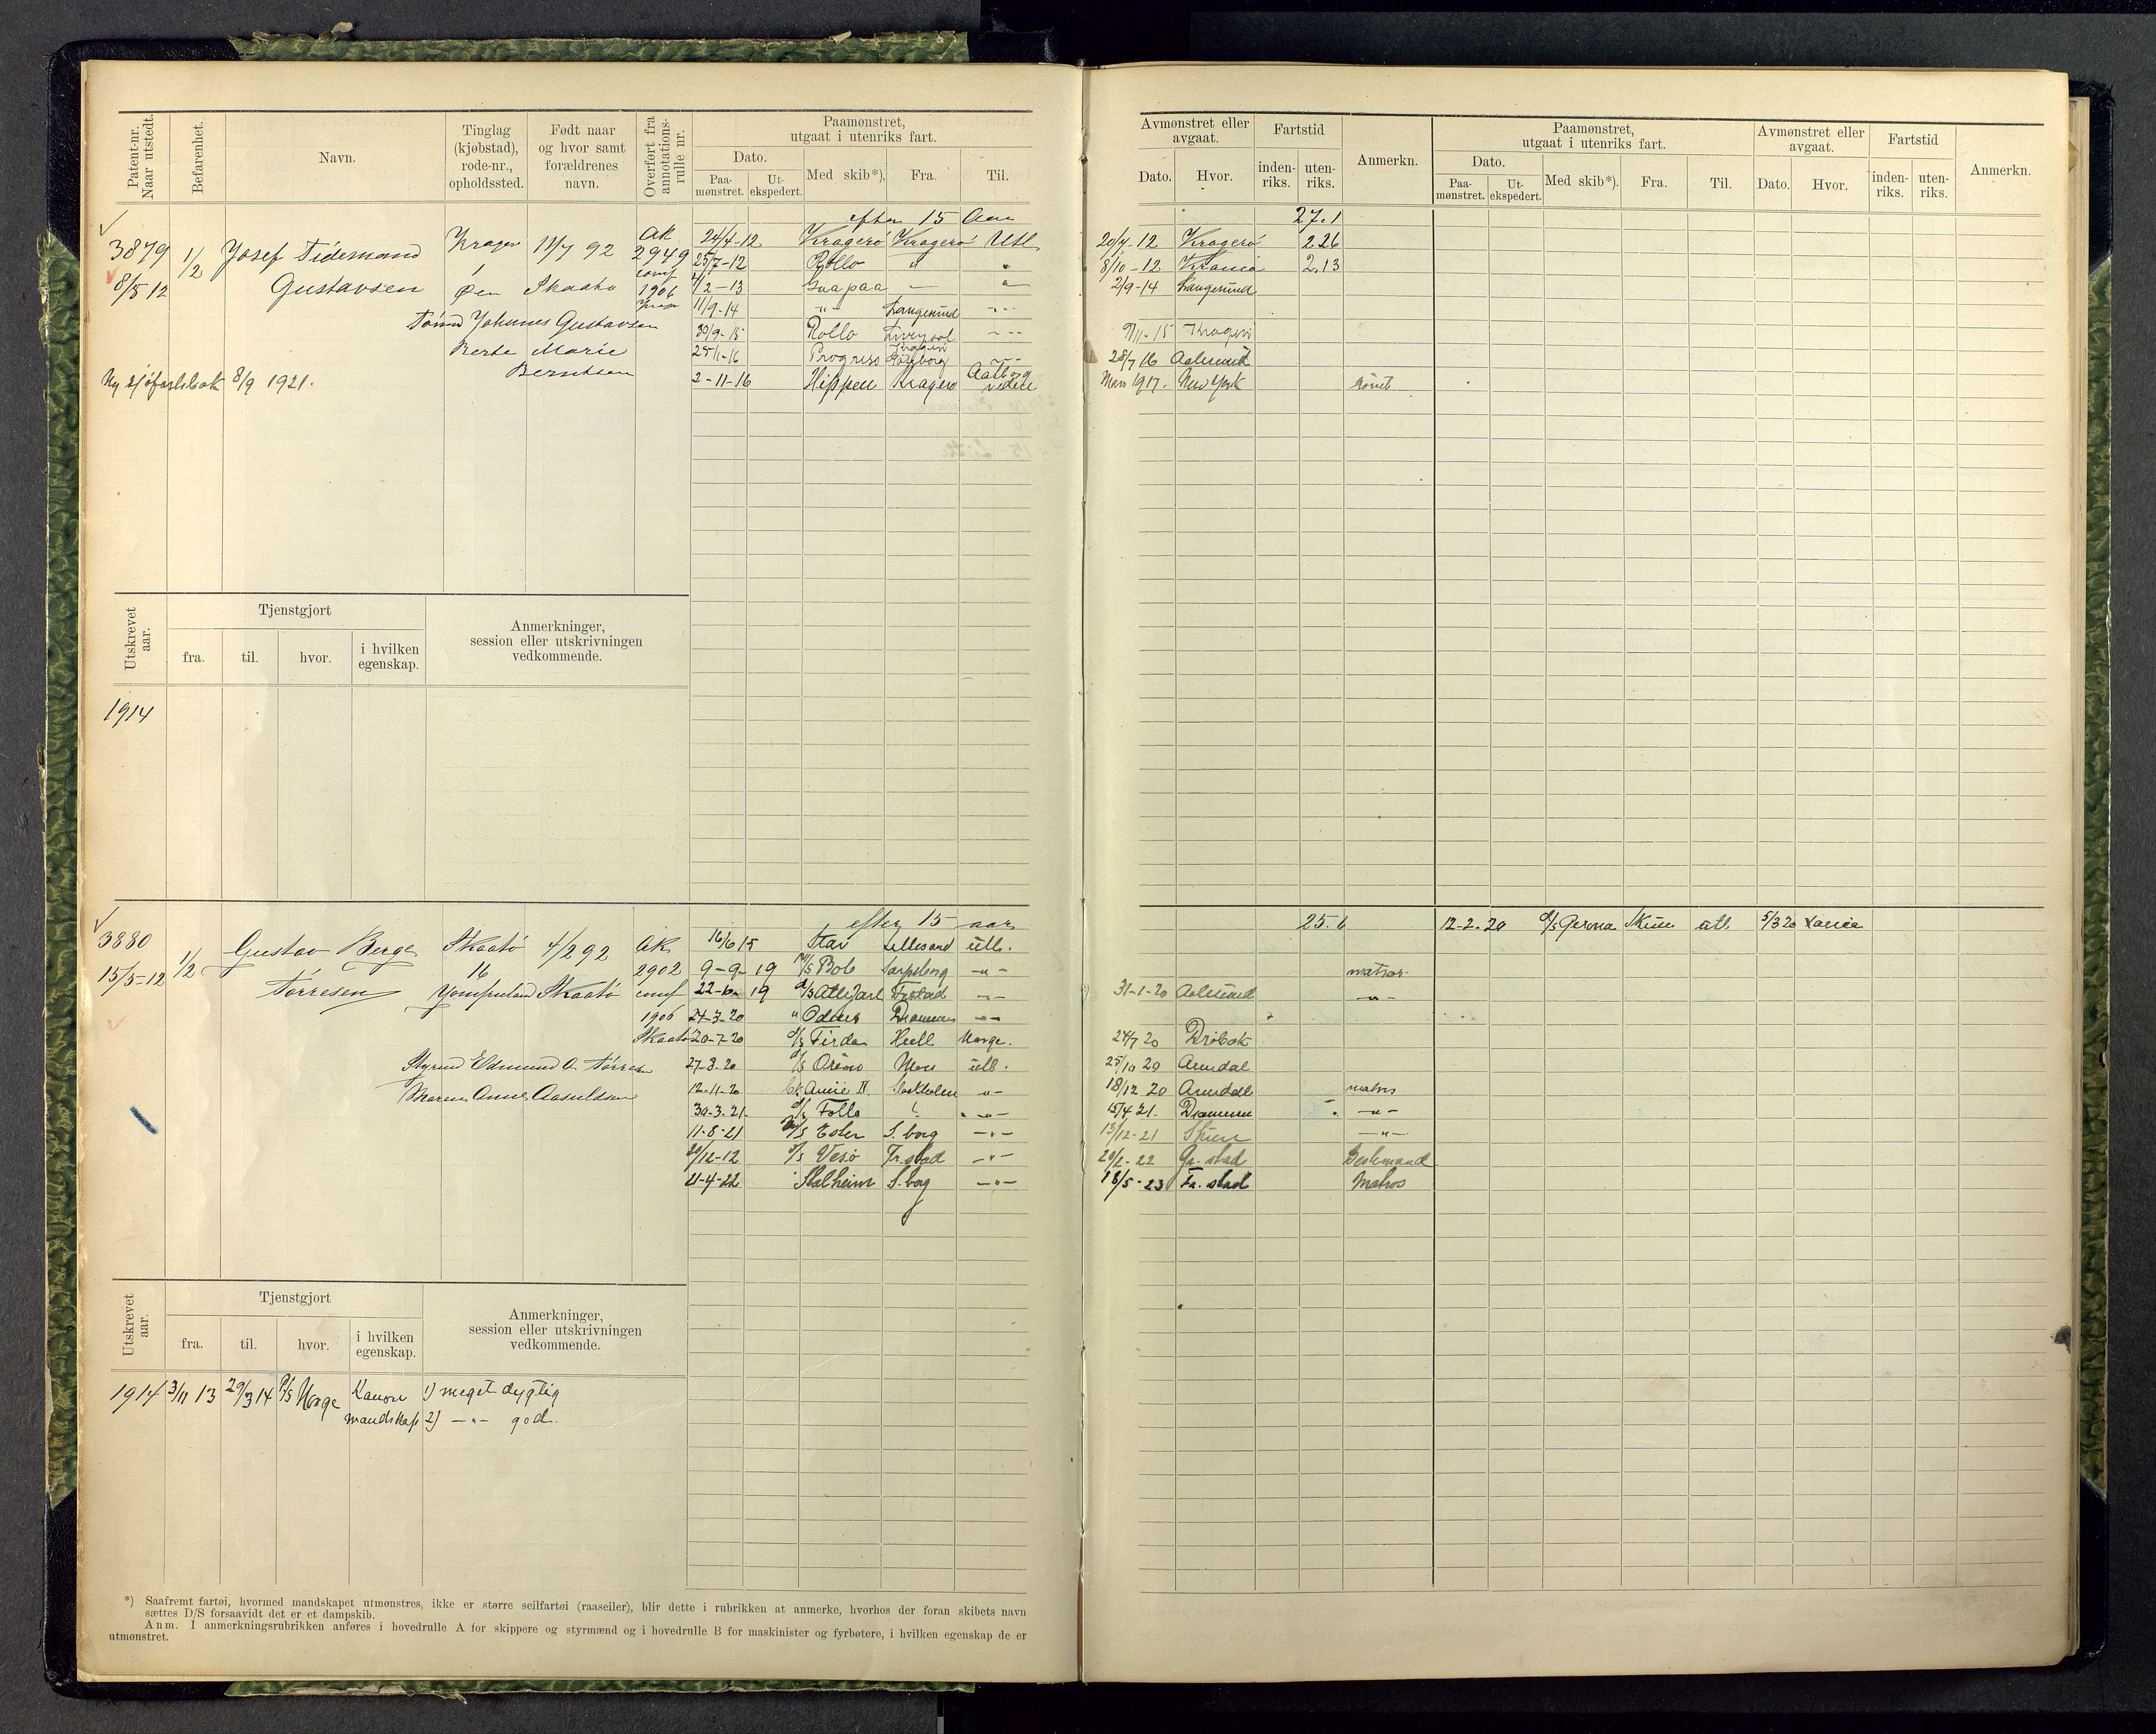 Patent-nr. Naar utstedt.
Befarenhet.
Navn.
Tinglag (kjøbstad), rode-nr., opholdssted.
Født naar og hvor samt forældrenes navn.
Overført fra annotations-rulle nr.
Paamønstret, utgaat i utenriks fart.
Dato.
Paa-mønstret.
Ut-ekspedert.
Med skib*).
Fra.
Til.
Avmønstret eller avgaat.
Dato.
Hvor.
Fartstid
inden-riks.
uten-riks.
Anmerkn.
Paamønstret, utgaat i utenriks fart.
Dato.
Paa-mønstret.
Ut-ekspedert.
Med skib*).
Fra.
Til.
Avmønstret eller avgaat.
Dato.
Hvor.
Fartstid
inden-riks.
uten-riks.
Anmerkn.
efter 15 Aar 27.1
3879 1/2 Josef Tidemand Kragerø 11/7 92 AK 2949
8/5 12 Gustavsen Øen Skaatø 1906
Johannes Gustavsen
Berte Marie
Berntsen
Ny sjøfartsbok 8/9 1921.
24/4-12 Kragerø Kragerø Utl. 20/7-12 Kragerø 2.26
25/7-12 Rollo " " 8/10-12 Krania 2.13
2-13 — " 2/9-14 Langesund
11/9-14 -"- Langesund -"-
30/9-15 Rollo Liverpool -"- 15 Kragerø
25/1-16 Progress Kragerø Gøteborg -"- 28/7 16 Aalesund
2-11-16 Hippen Kragerø Aalborg videre Mars 1917. New York rømt
Utskrevet aar.
Tjenstgjort
fra.
til.
hvor.
i hvilken egenskap.
Anmerkninger, session eller utskrivningen vedkommende.
1914
efter 15 aar 25.6
12-2.20 d/s Gerna Skien utl. 5/3 20 Xania
3880 1/2 Gustav Berge Skaatø 4/2 92 AK
15/5-12 Tørresen 16 Jomfruland Skaatø 2902 conf 1906 Skaatø
Styrmd Edmund A. Tørresen
Maren Anne
16/6 15 Stav Lillesand utl.
9-9-19 M/S Bob Sarpsborg -"- matros
22-10 19 d/s Atle Jarl Frstad -"- 31-1-20 Aalesund -"-
24-3-20 " Odins Drammen -"-
20-7-20 d/s Firda Hull Norge. 24/7 20 Drøbak
27-8-20 d/s Moss utl. 25/10 20 Arendal
12-11-20 Annie II Stockholm -"- 18/12 20 Arendal matros
30-3-21. d/s Follo -"- 15/4 21. Drammen -"-
11-8-21 S. borg -"- 13/12-21 Skien -"-
20/12-12 d/s Vesø Fr. stad -"- 20/2-22 Gr. stad Bestemand
21-4-22 Stalheim S. borg -"- 18/5-23 Fr. stad Matros
Utskrevet aar.
Tjenstgjort
fra.
til.
hvor.
i hvilken egenskap.
Anmerkninger, session eller utskrivningen vedkommende.
1914 3/11 13 29/3 14 P/S Norge Kanon 1) meget dygtig
mandskap 2) -"- god.
*) Saafremt fartøi, hvormed mandskapet utmønstres, ikke er større seilfartøi (raaseiler), blir dette i rubrikken at anmerke, hvorhos der foran skibets navn
sættes D/S forsaavidt det er et dampskib.
Anm. I anmerkningsrubrikken anføres i hovedrulle A for skippere og styrmænd og i hovedrulle B for maskinister og fyrbøtere, i hvilken egenskap de er
utmønstret.